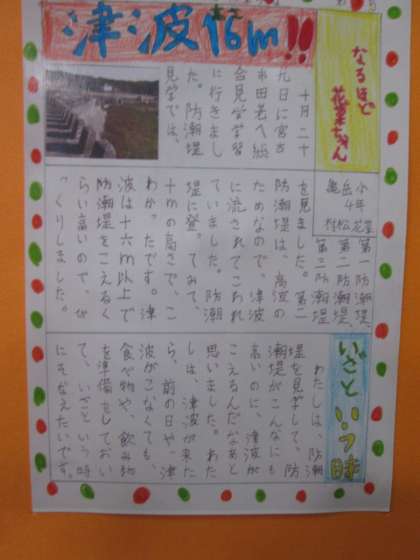 津波16mこす!!
なるほど
花菜ちゃん
亀岳小
4年
村松花菜
十月二十
九日に宮古
市田老へ総
合見学学習
に行きまし
た。防潮堤
見学では、
第一防潮堤、
第二防潮堤、
第三防潮堤
を見ました。第二
防潮堤は、高波の
ためなので、津波
に流されてこわれ
ていました。防潮
堤に登ってみて、
十mの高さで、こ
わかったです。津
波は十六m以上で
防潮堤をこえるく
らい高いので、び
っくりしました。
いざという時
わたしは、防潮
堤を見学して、防
潮堤がこんなにも
高いのに、津波が
こえるんだなあと
思いました。わた
しは、津波が来た
ら、前の日や、津
波がこなくても、
食べ物や、飲み物
を準備をしておい
て、いざという時
にそなえたいです。